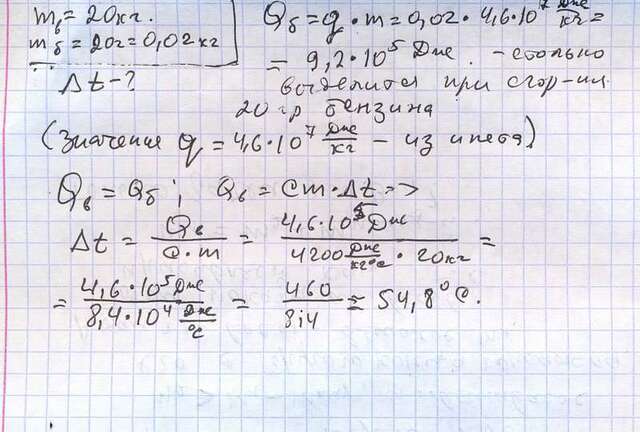 m в = 20 кг.
m б = 20 г = 0,02 кг
Δt - ?
Qб = q · m = 0,02 · 4,6 · 10⁷ Дж/кг =
= 9,2 · 10⁵ Дж. - столько
выделится при сгор-ии
20 гр бензина
(Значение q = 4,6 · 10⁷ Дж/кг - из инета)
Qв = Qб ; Qв = cm · Δt =>
Δt = Qв / c · m = 4,6 · 10⁵ Дж / 4200 Дж/кг°С · 20 кг =
= 4,6 · 10⁵ Дж / 8,4 · 10⁴ Дж/°С = 460 / 8,4 = 54,8° С.